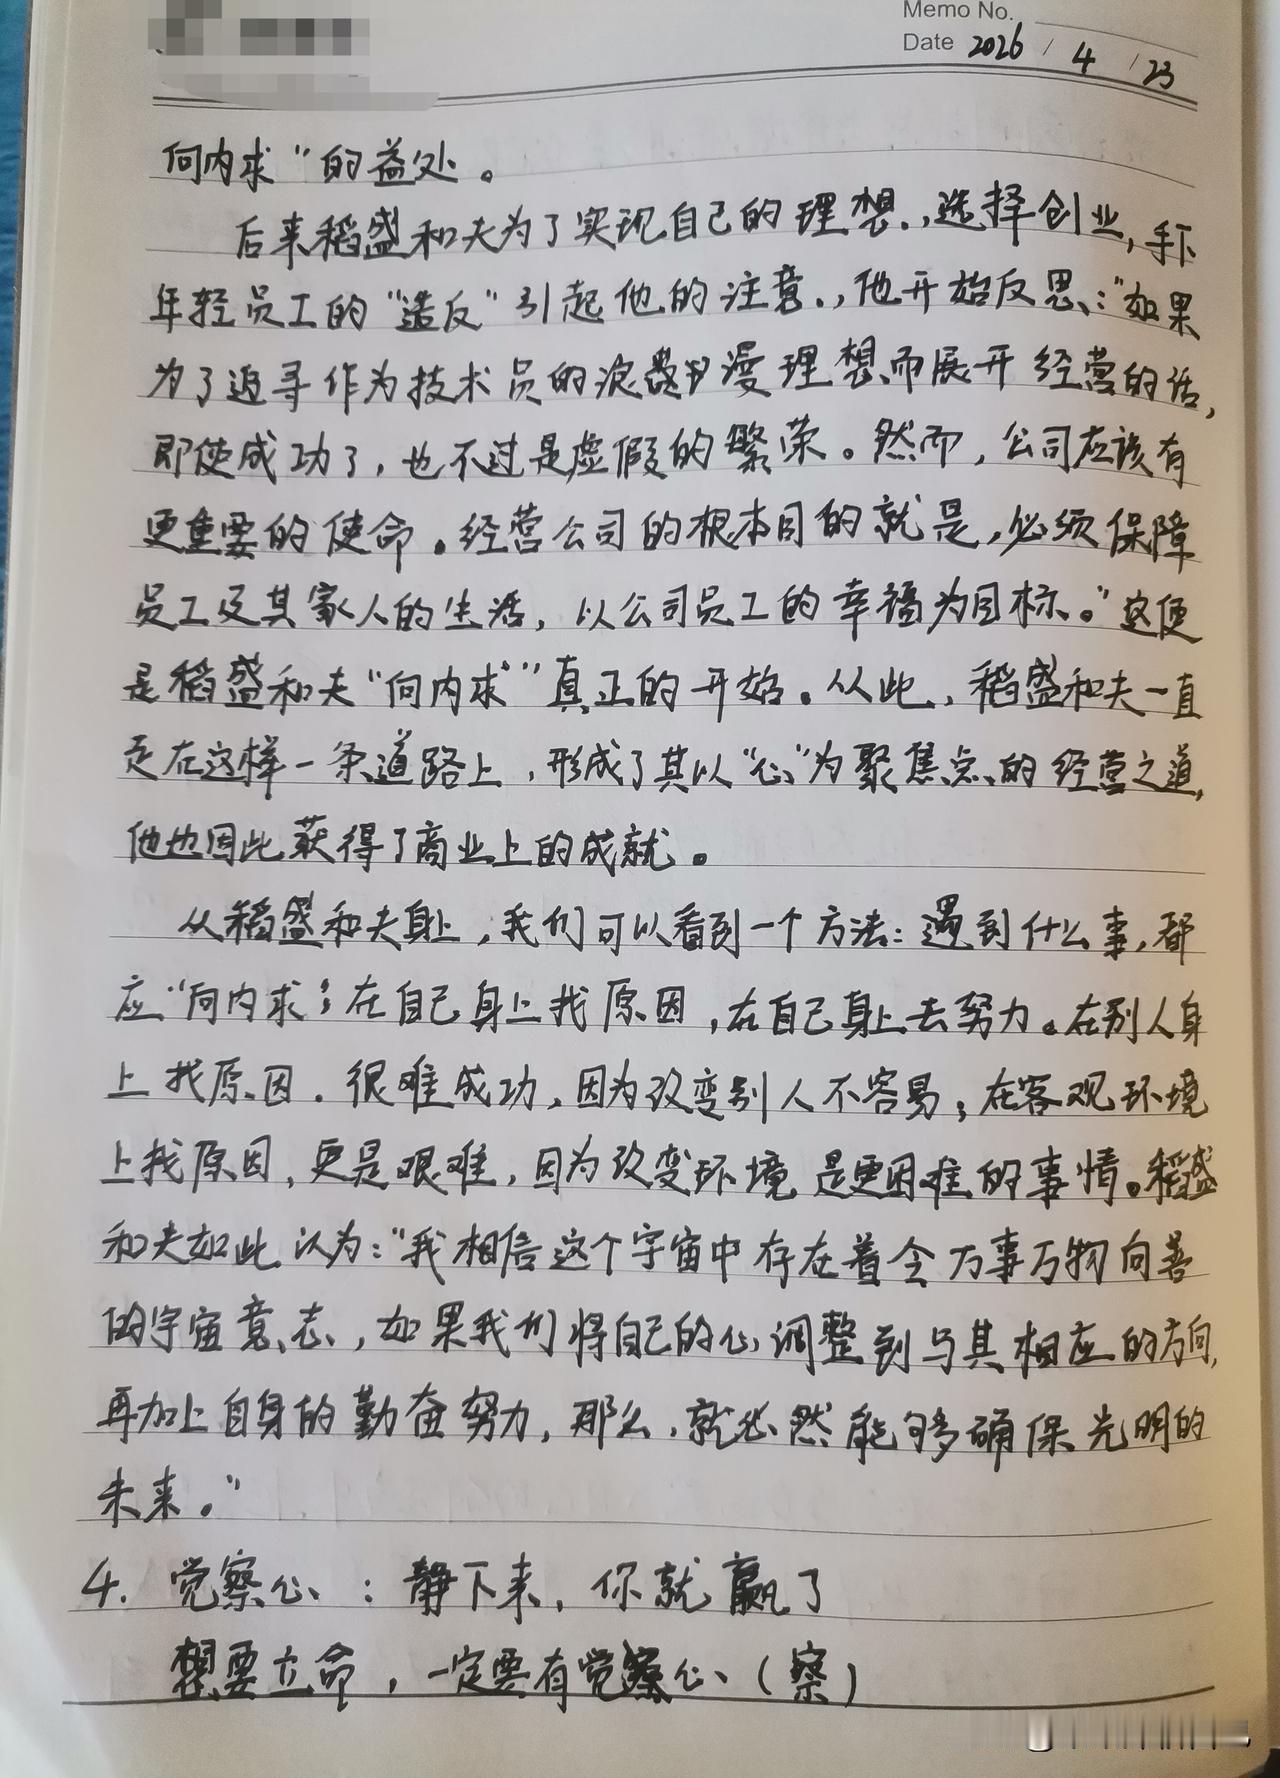 Memo No.
Date 2026 / 4 / 23
向内求”的益处。
后来稻盛和夫为了实现自己的理想，选择创业，手下
年轻员工的“造反”引起他的注意，他开始反思：“如果
为了追寻作为技术员的浪漫理想而展开经营的话，
即使成功了，也不过是虚假的繁荣。然而，公司应该有
更重要的使命。经营公司的根本目的就是，必须保障
员工及其家人的生活，以公司员工的幸福为目标。”这便
是稻盛和夫“向内求”真正的开始。从此，稻盛和夫一直
走在这样一条道路上，形成了其以“心”为聚焦点的经营之道，
他也因此获得了商业上的成就。
从稻盛和夫身上，我们可以看到一个方法：遇到什么事，都
应“向内求”，在自己身上找原因，在自己身上去努力。在别人身
上找原因，很难成功，因为改变别人不容易；在客观环境
上找原因，更是艰难，因为改变环境是更困难的事情。稻盛
和夫如此认为：“我相信这个宇宙中存在着令万事万物向善
的宇宙意志，如果我们将自己的心调整到与其相应的方向，
再加上自身的勤奋努力，那么，就必然能够确保光明的
未来。”
4. 觉察心：静下来，你就赢了
想要立命，一定要有觉察心（察）